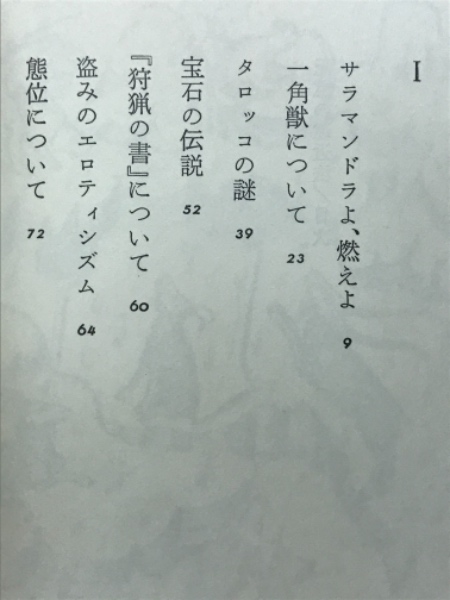 I
サラマンドラよ、燃えよ 9
一角獣について 23
タロッコの謎 39
宝石の伝説 52
『狩猟の書』について 60
盗みのエロティシズム 64
態位について 72